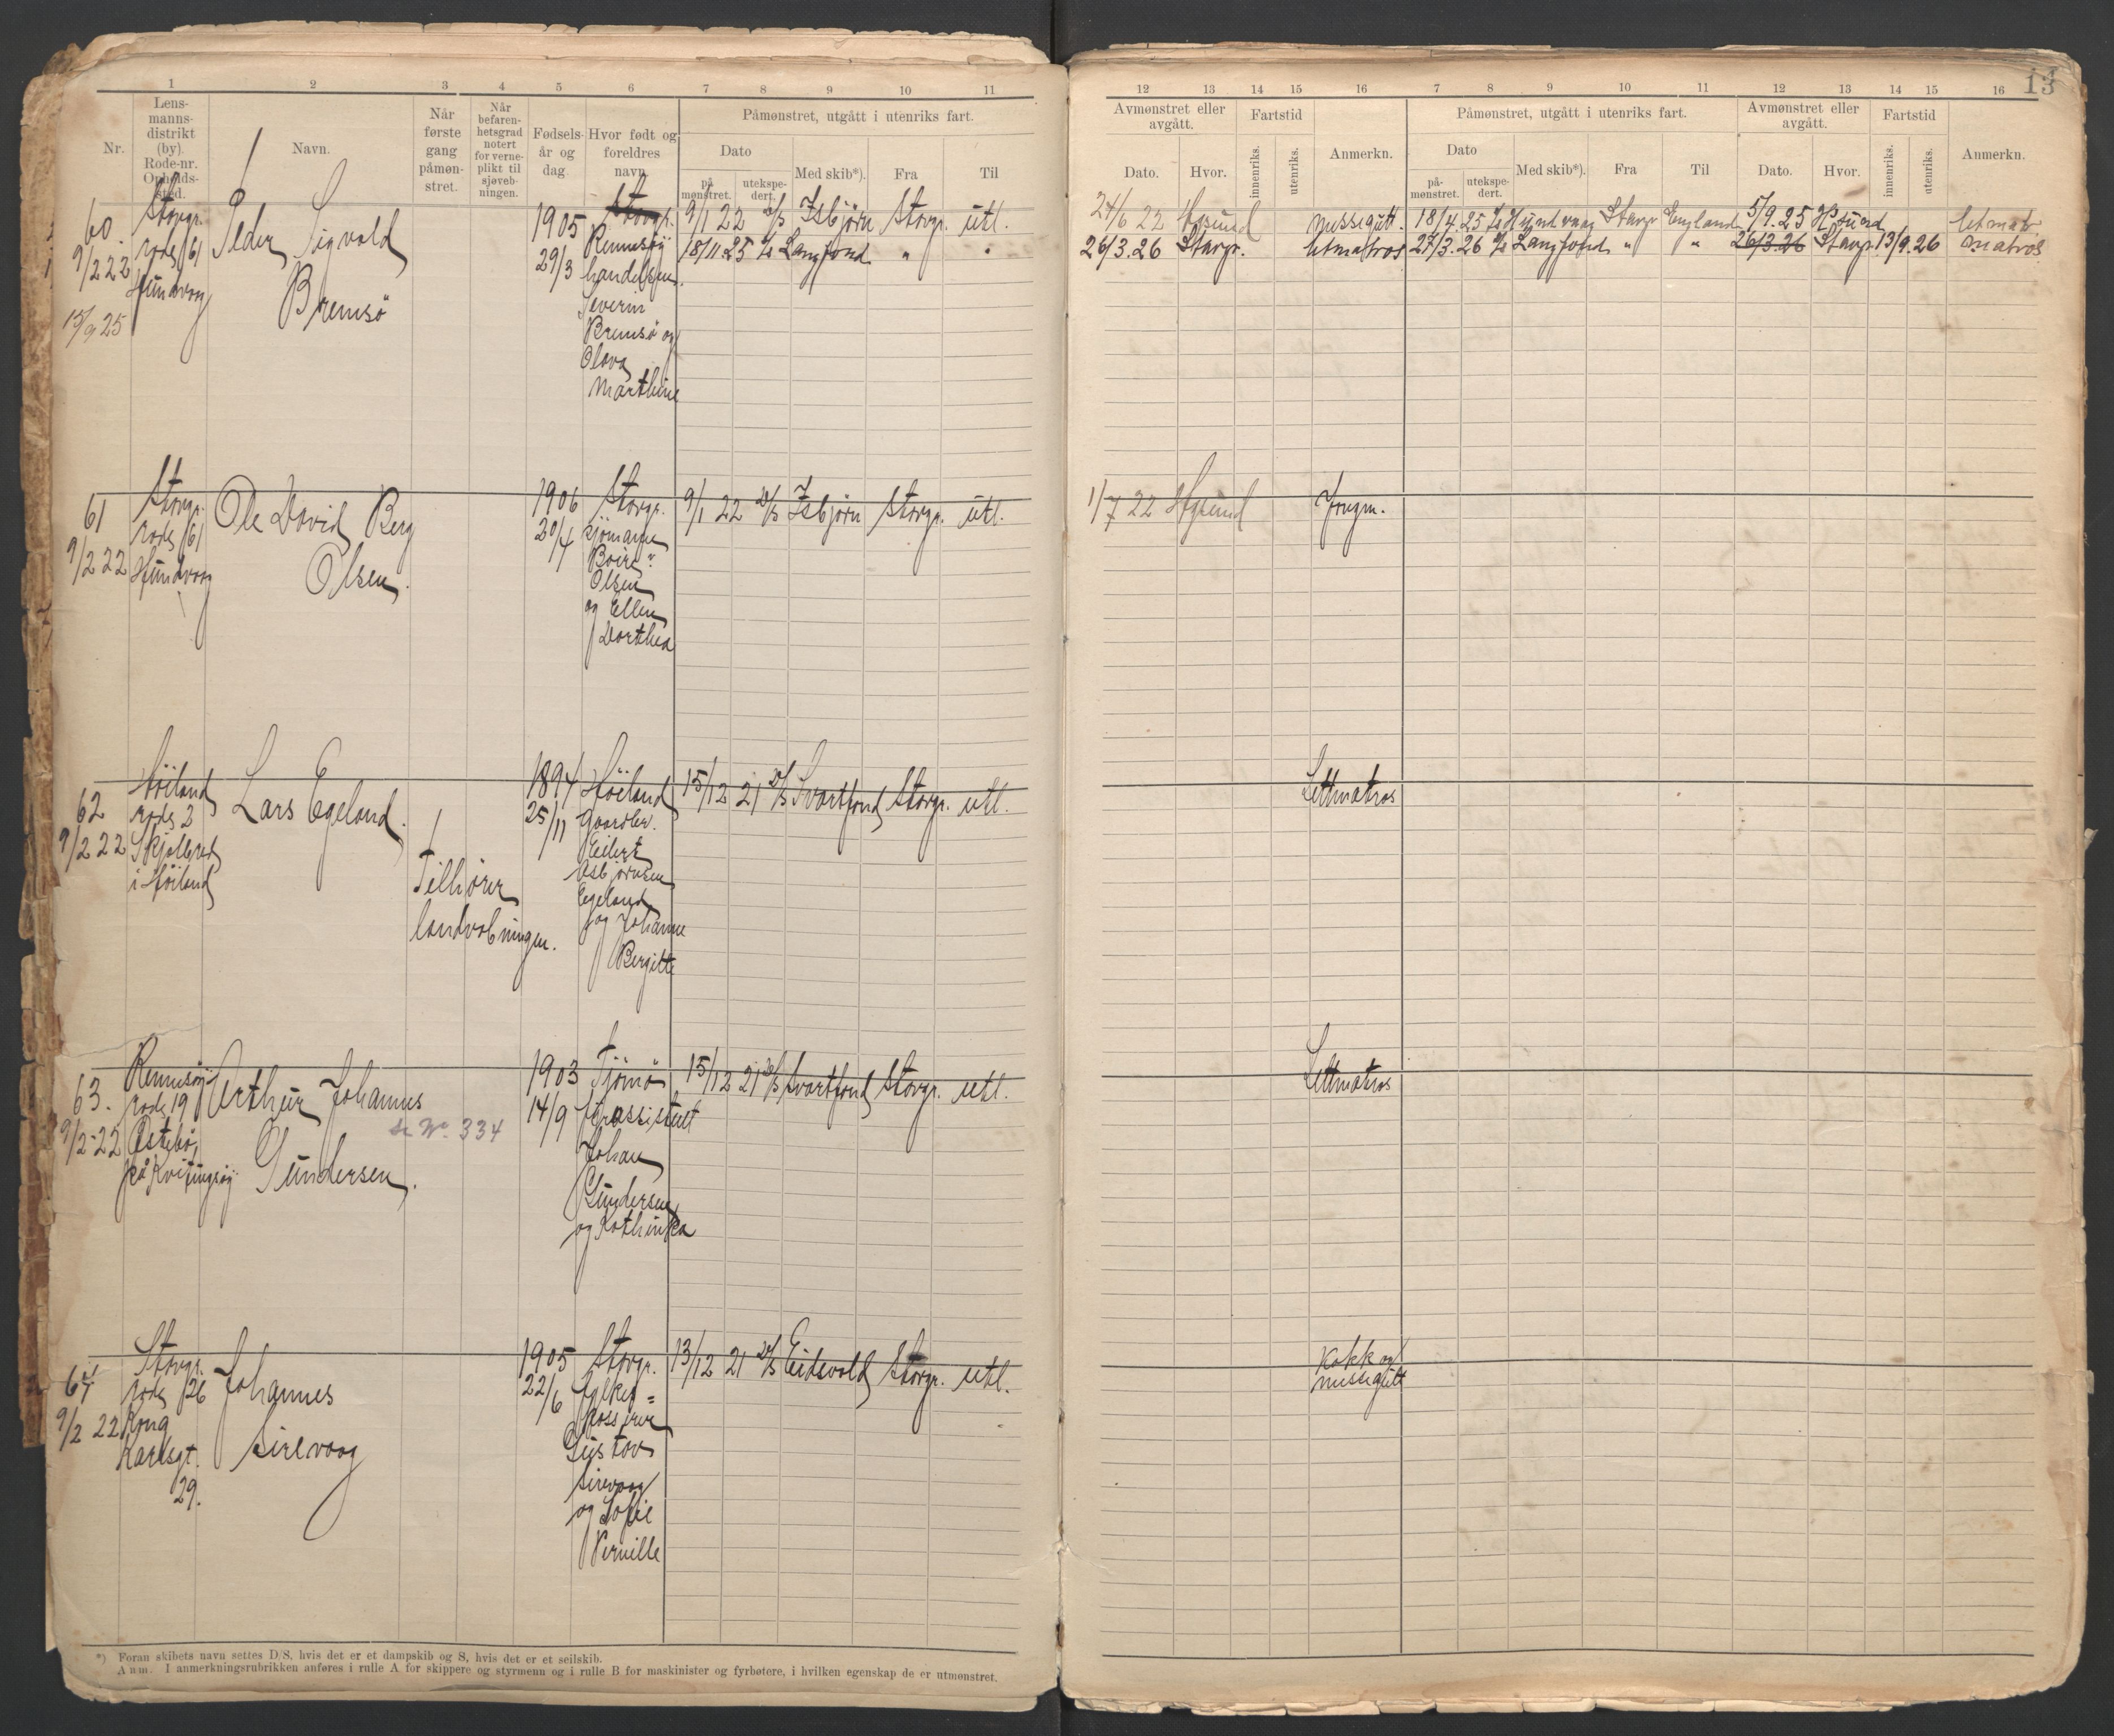 1 2 3 4 5 6 7 8 9 10 11
Nr.
Lens-
manns-
distrikt
(by).
Rode-nr.
Opholds-
sted.
Navn.
Når
første
gang
påmøn-
stret.
Når
befaren-
hetsgrad
notert
for verne-
plikt til
sjøveb-
ningen.
Fødsels-
år og
dag.
Hvor født og
foreldres
navn.
Påmønstret, utgått i utenriks fart.
Dato
på
mønstret.
utekspe-
dert.
Med skib*).
Fra
Til
60.
9/2 22
15/9 25
Stavgr.
rode 161
Hundvaag
Peder Sigvald
Bremsö
1905
29/3
Stavgr.
Rennesöy
handelsm.
Severin
Bremsö og
Olava
Marthine
9/1 22 D/S Isbjörn Stavgr. utl.
18/11.25 Langfond " "
61
9/2 22
Stavgr.
rode 161
Hundvaag
Ole David Berg
Olsen.
1906
20/4
Stavgr.
sjömann
Olsen
og Ellen
Dorthea
9/1 22 D/S Isbjørn Stavgr. utl.
62
9/2 22
Höiland
rode 2
Skjalbred
i Höiland
Lars Egeland.
Tilhörer
landvebningen.
1894
25/11
Höiland
Gaardbr.
Eilert
Asbjørnsen
Egeland
og Johanne
Bergitte
15/12 21 D/S Svartfond Stavgr. utl.
63.
9/2-22
Rennesöy
rode 19
Østebø
på Kvitingsøy
Arthur Johannes
Gundersen.
Se No. 334
1903
14/9
Tjömö
fyrassistent
Johan
Gundersen
og Kathinka
15/12 21 D/S Svartfond Stavgr. utl.
64
9/2 22
Stavgr.
rode 26
Kong
Karlsgt.
29.
Johannes
Sirevaag
1905
22/6
Stavgr.
fylkes=
kasserer
Gustav
Sirevaag
og Sofie
Pernille
13/12 21 D/S Eidsvold Stavgr. utl.
*) Foran skibets navn settes D/S, hvis det er et dampskib og S, hvis det er et seilskib.
Anm. I anmerkningsrubrikken anføres i rulle A for skippere og styrmenn og i rulle B for maskinister og fyrbøtere, i hvilken egenskap de er utmønstret.
13
12 13 14 15 16 7 8 9 10 11 12 13 14 15 16
Avmønstret eller
avgått.
Dato.
Hvor.
Fartstid
innenriks.
utenriks.
Anmerkn.
Påmønstret, utgått i utenriks fart.
Dato
på-
mønstret.
utekspe-
dert.
Med skib*).
Fra
Til
Avmønstret eller
avgått.
Dato.
Hvor.
Fartstid
innenriks.
utenriks.
Anmerkn.
24/6 22 Hgsund messegutt. 18/4.25 Hundvaag Stavgr England 5/9.25 Hgsund letmatr.
26/3.26 Stavgr. letmatros 27/3.26 Langfond " " 26/3.26 Stavgr. 13/9.26 matros
1/7 22 Hgsund Jungm.
Lettmatros
Lettmatros
Kokk og
messegutt